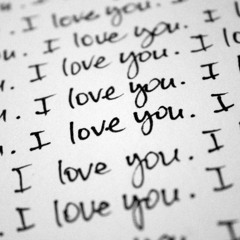 I love you.
u. I love you. I
. I love you. I lo
u. I love you. I
u. I love you. I
I love you. I
. I love you. I